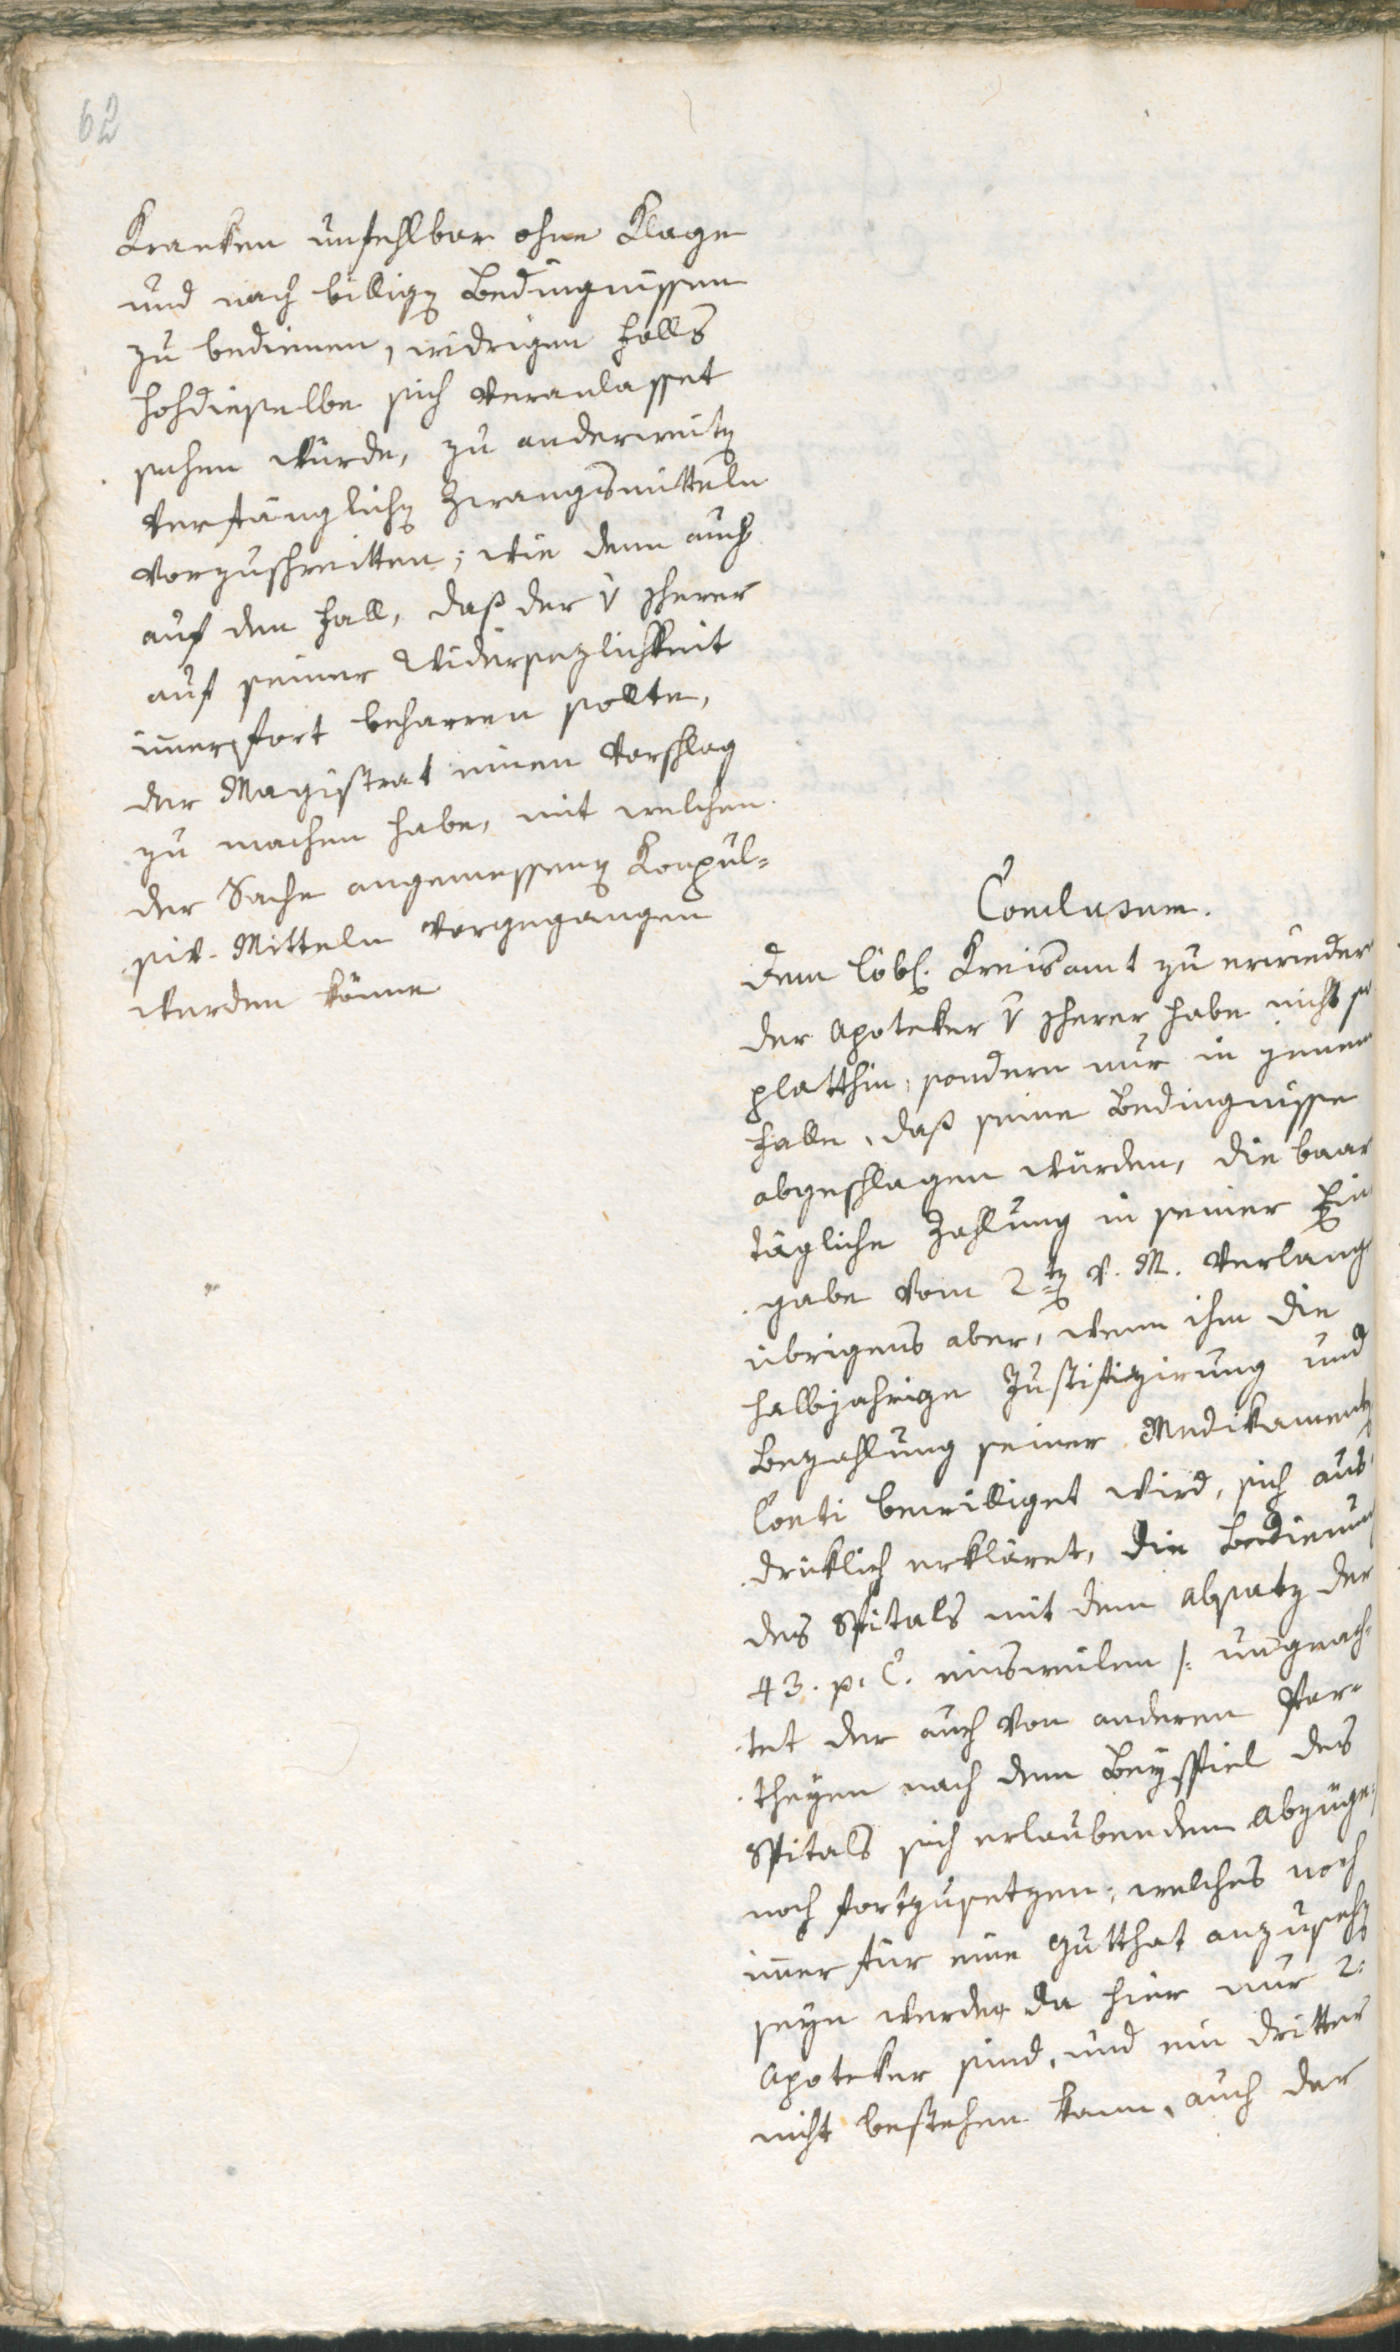 62
Kranken unfehlbar ohne Klage
und nach billigen Bedingnüssen
zu bedienen, widrigen Falls
hochdieselbe sich veranlasset
sehen würde, zu anderweiten
verfänglichen Zwangsmitteln
vorzuschreitten; wie denn auch
auf den Fall, daß der v Scherer
auf seiner Widersezlichkeit
imerfort beharren sollte,
der Magistrat einen Vorschlag
zu machen habe, mit welchen
der Sache angemessenen Kompul-
siv-Mitteln vorgegangen
werden könne
Conclusum.
dem löbl. Kreisamt zu erwieder
der Apoteker v Scherer habe nicht so
platthin, sondern nur in jenem
Falle, daß seine Bedingnüsse
abgeschlagen würden, die baar
tägliche Zahlung in seiner Ein
gabe vom 2ten v. M. verlangt
übrigens aber, wenn ihm die
halbjahrige Justifizirung und
Bezahlung seiner Medikamenten
Conti bewilliget wird, sich aus
drüklich erkläret, die Bedienung
des Spitals mit dem Absatz der
43. p. C. einsweilen /: ungeach-
tet der auch von anderen Par-
theyen nach dem Beyspiel des
Spitals sich erlaubenden Abzüge:/
noch fortzusetzen; welches noch
imer für eine Gutthat anzusehen
seyn werde, da hier nur 2:
Apoteker sind, und ein dritter
nicht bestehen kann, auch der